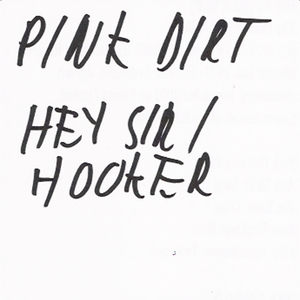 PINK DIRT
HEY SIR /
HOOKER